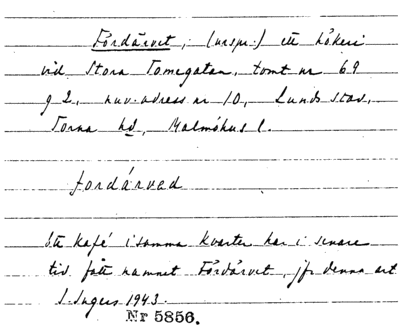 Fördärvet, (urspr.) ett hökeri
vid Stora Tomegatan, tomt nr 69
g 2, nuv. adress nr 10, Lunds stad,
Torna hd, Malmöhus l.
fordärved
Ett kafé i samma kvarter har i senare
tid fått namnet Fördärvet, jfr denna art
I. Ingers 1943.
Nr 5856.